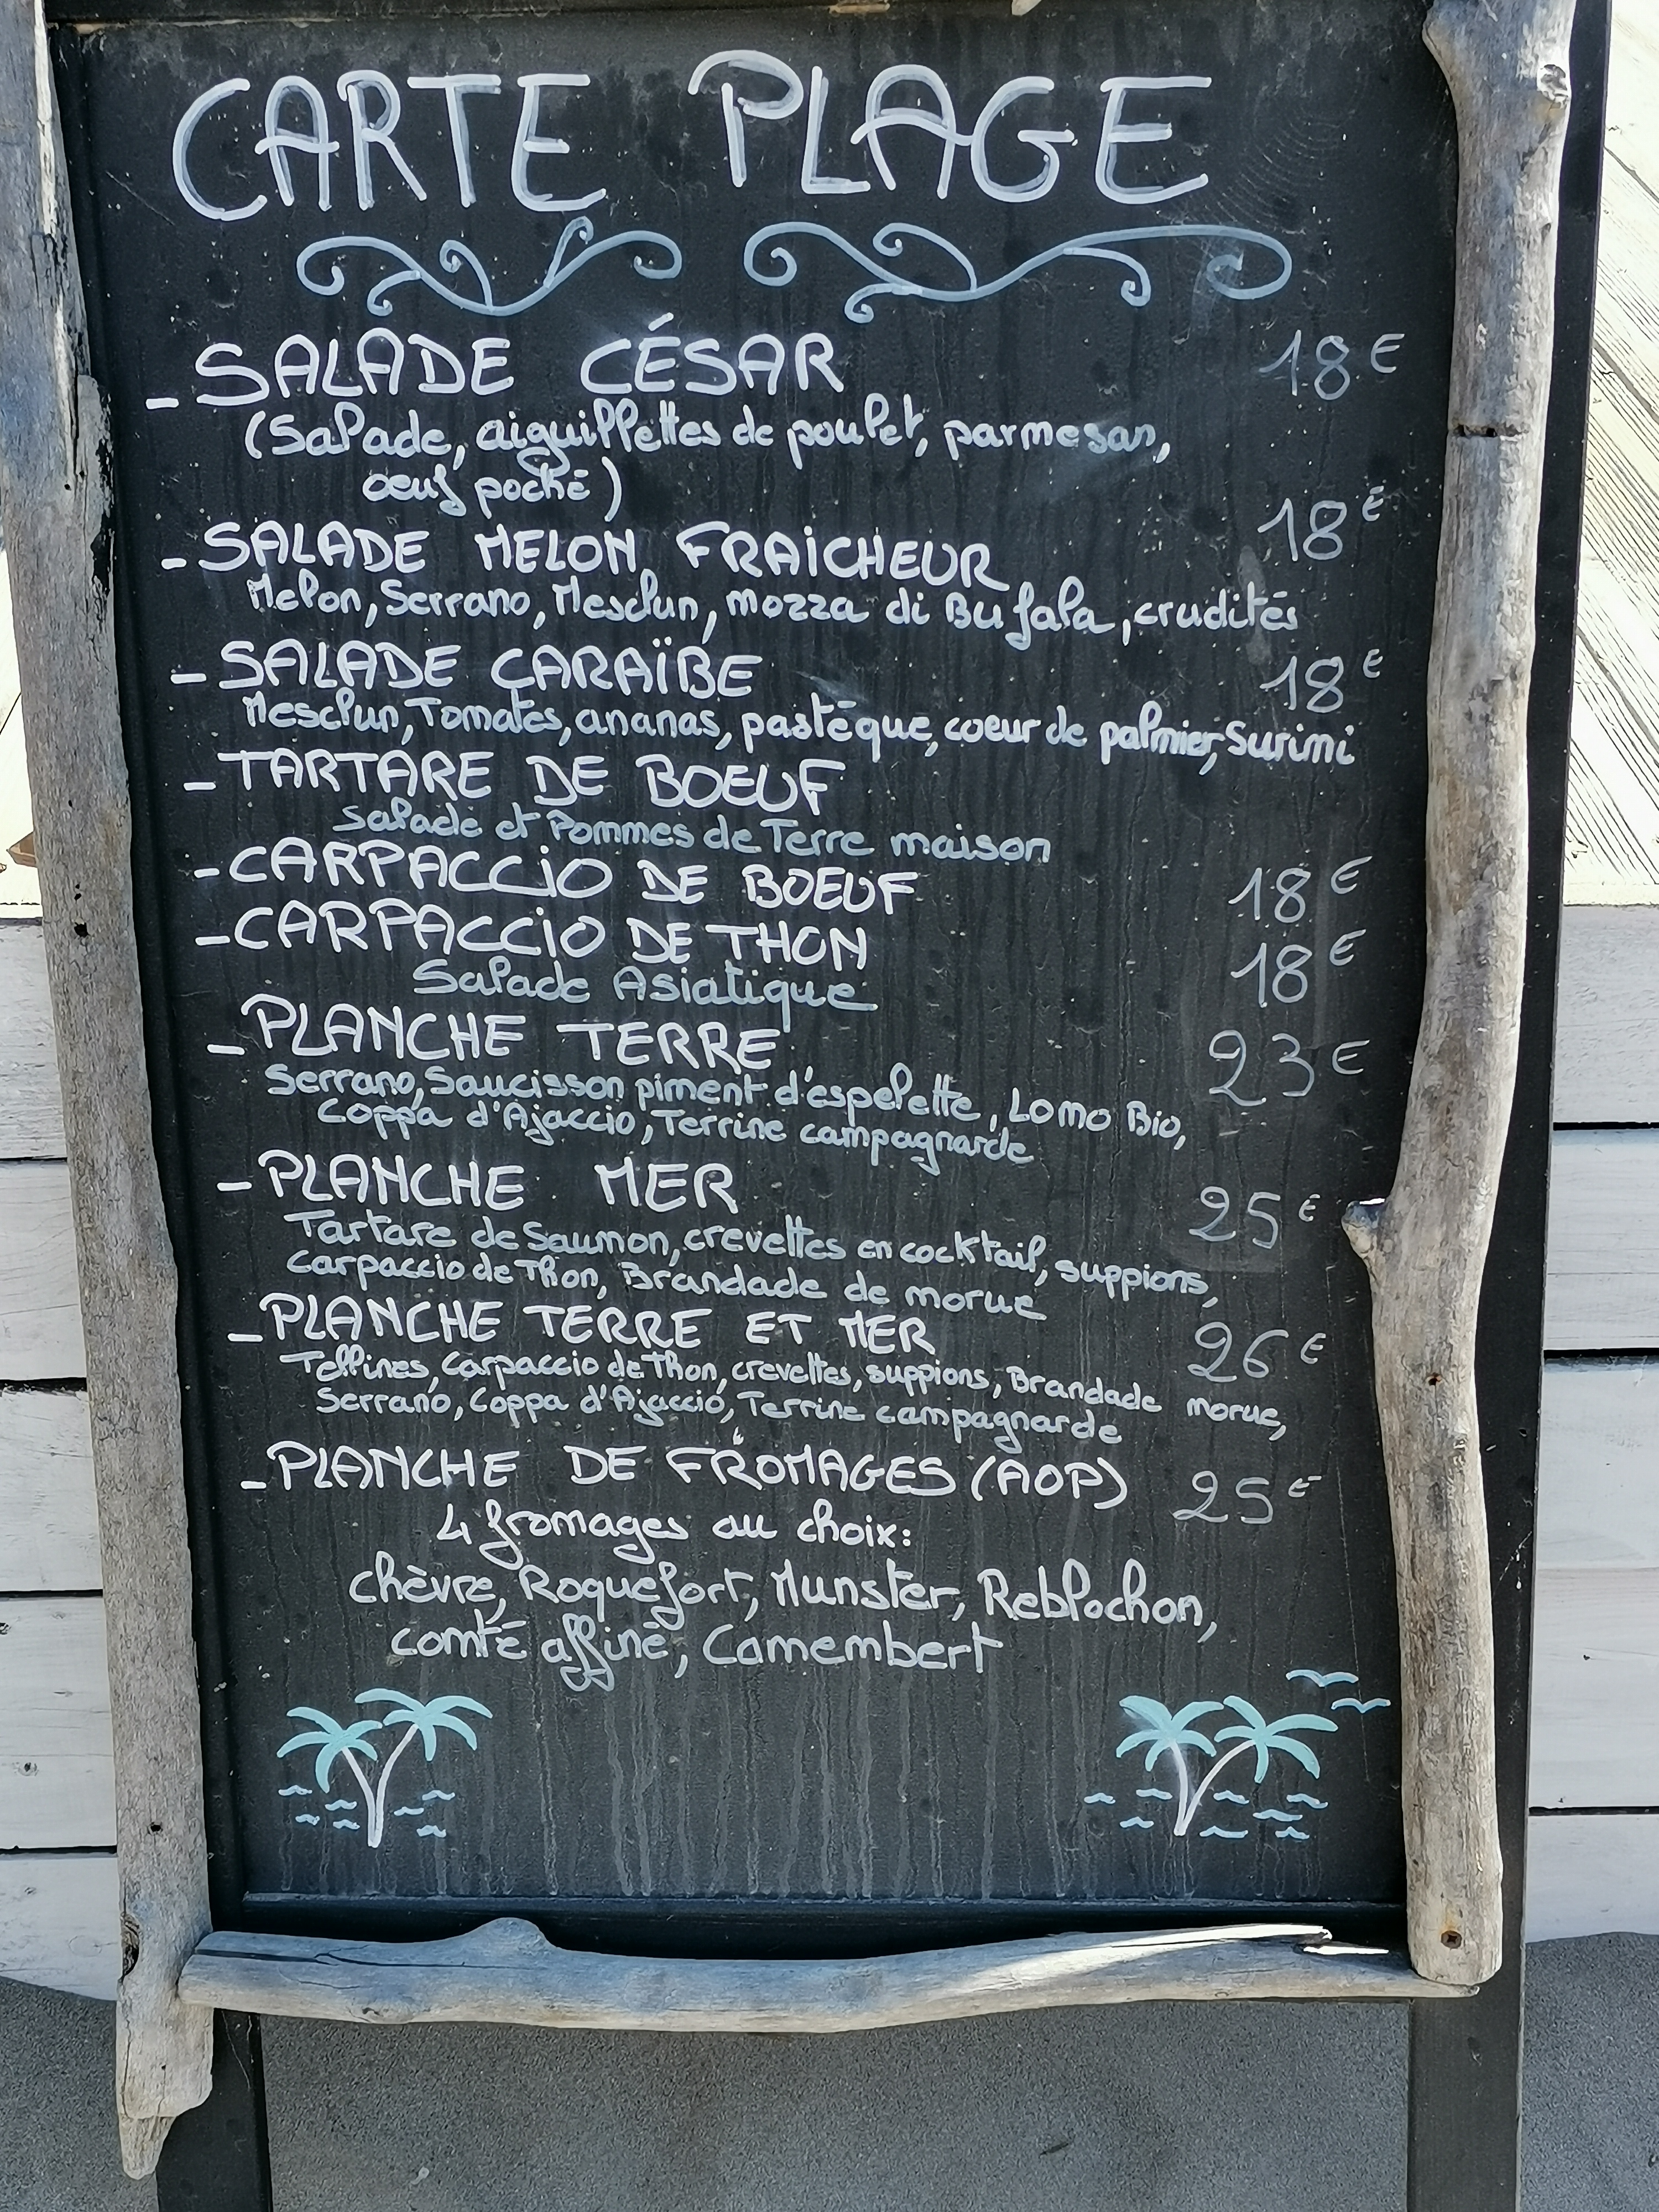 CARTE PLAGE
- SALADE CÉSAR 18€
(Salade, aiguillettes de poulet, parmesan,
oeuf poché)
- SALADE MELON FRAiCHEUR 18€
Melon, Serrano, Mesclun, mozza di Bufala, crudités
- SALADE CARAÏBE 18€
Mesclun, Tomates, ananas, pastèque, coeur de palmier, Surimi
- TARTARE DE BOEUF
Salade et Pommes de Terre maison
- CARPACCiO DE BOEUF 18€
- CARPACCiO DE THON 18€
Salade Asiatique
- PLANCHE TERRE 23€
Serrano, Saucisson piment d'espelette, Lomo Bio,
Coppa d'Ajaccio, Terrine campagnarde
- PLANCHE MER 25€
Tartare de Saumon, crevettes en cocktail, suppions,
Carpaccio de Thon, Brandade de morue
- PLANCHE TERRE ET MER 26€
Tellines, Carpaccio de Thon, crevettes, suppions, Brandade morue,
Serrano, Coppa d'Ajaccio, Terrine campagnarde
- PLANCHE DE FROMAGES (AOP) 25€
4 fromages au choix:
chèvre, Roquefort, Munster, Reblochon,
comté affiné, Camembert